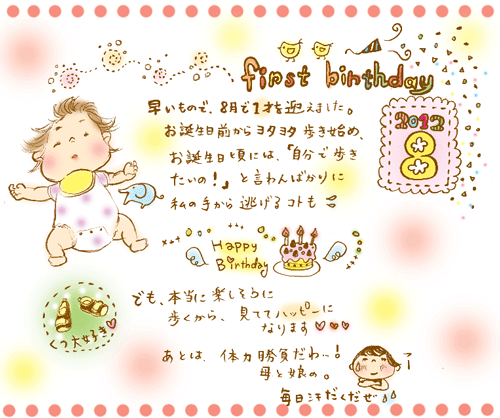 first birthday
2012
8
早いもので、8月で1才を迎えました。
お誕生日前からヨタヨタ歩き始め、
お誕生日頃には、「自分で歩き
たいの!」と言わんばかりに
私の手から逃げるコトも
Happy
Birthday
でも、本当に楽しそうに
歩くから、見ててハッピーに
なります♥♥♥
くつ大好き♥
あとは、体力勝負だわ…!
母と娘の。
毎日汗だくだぜ